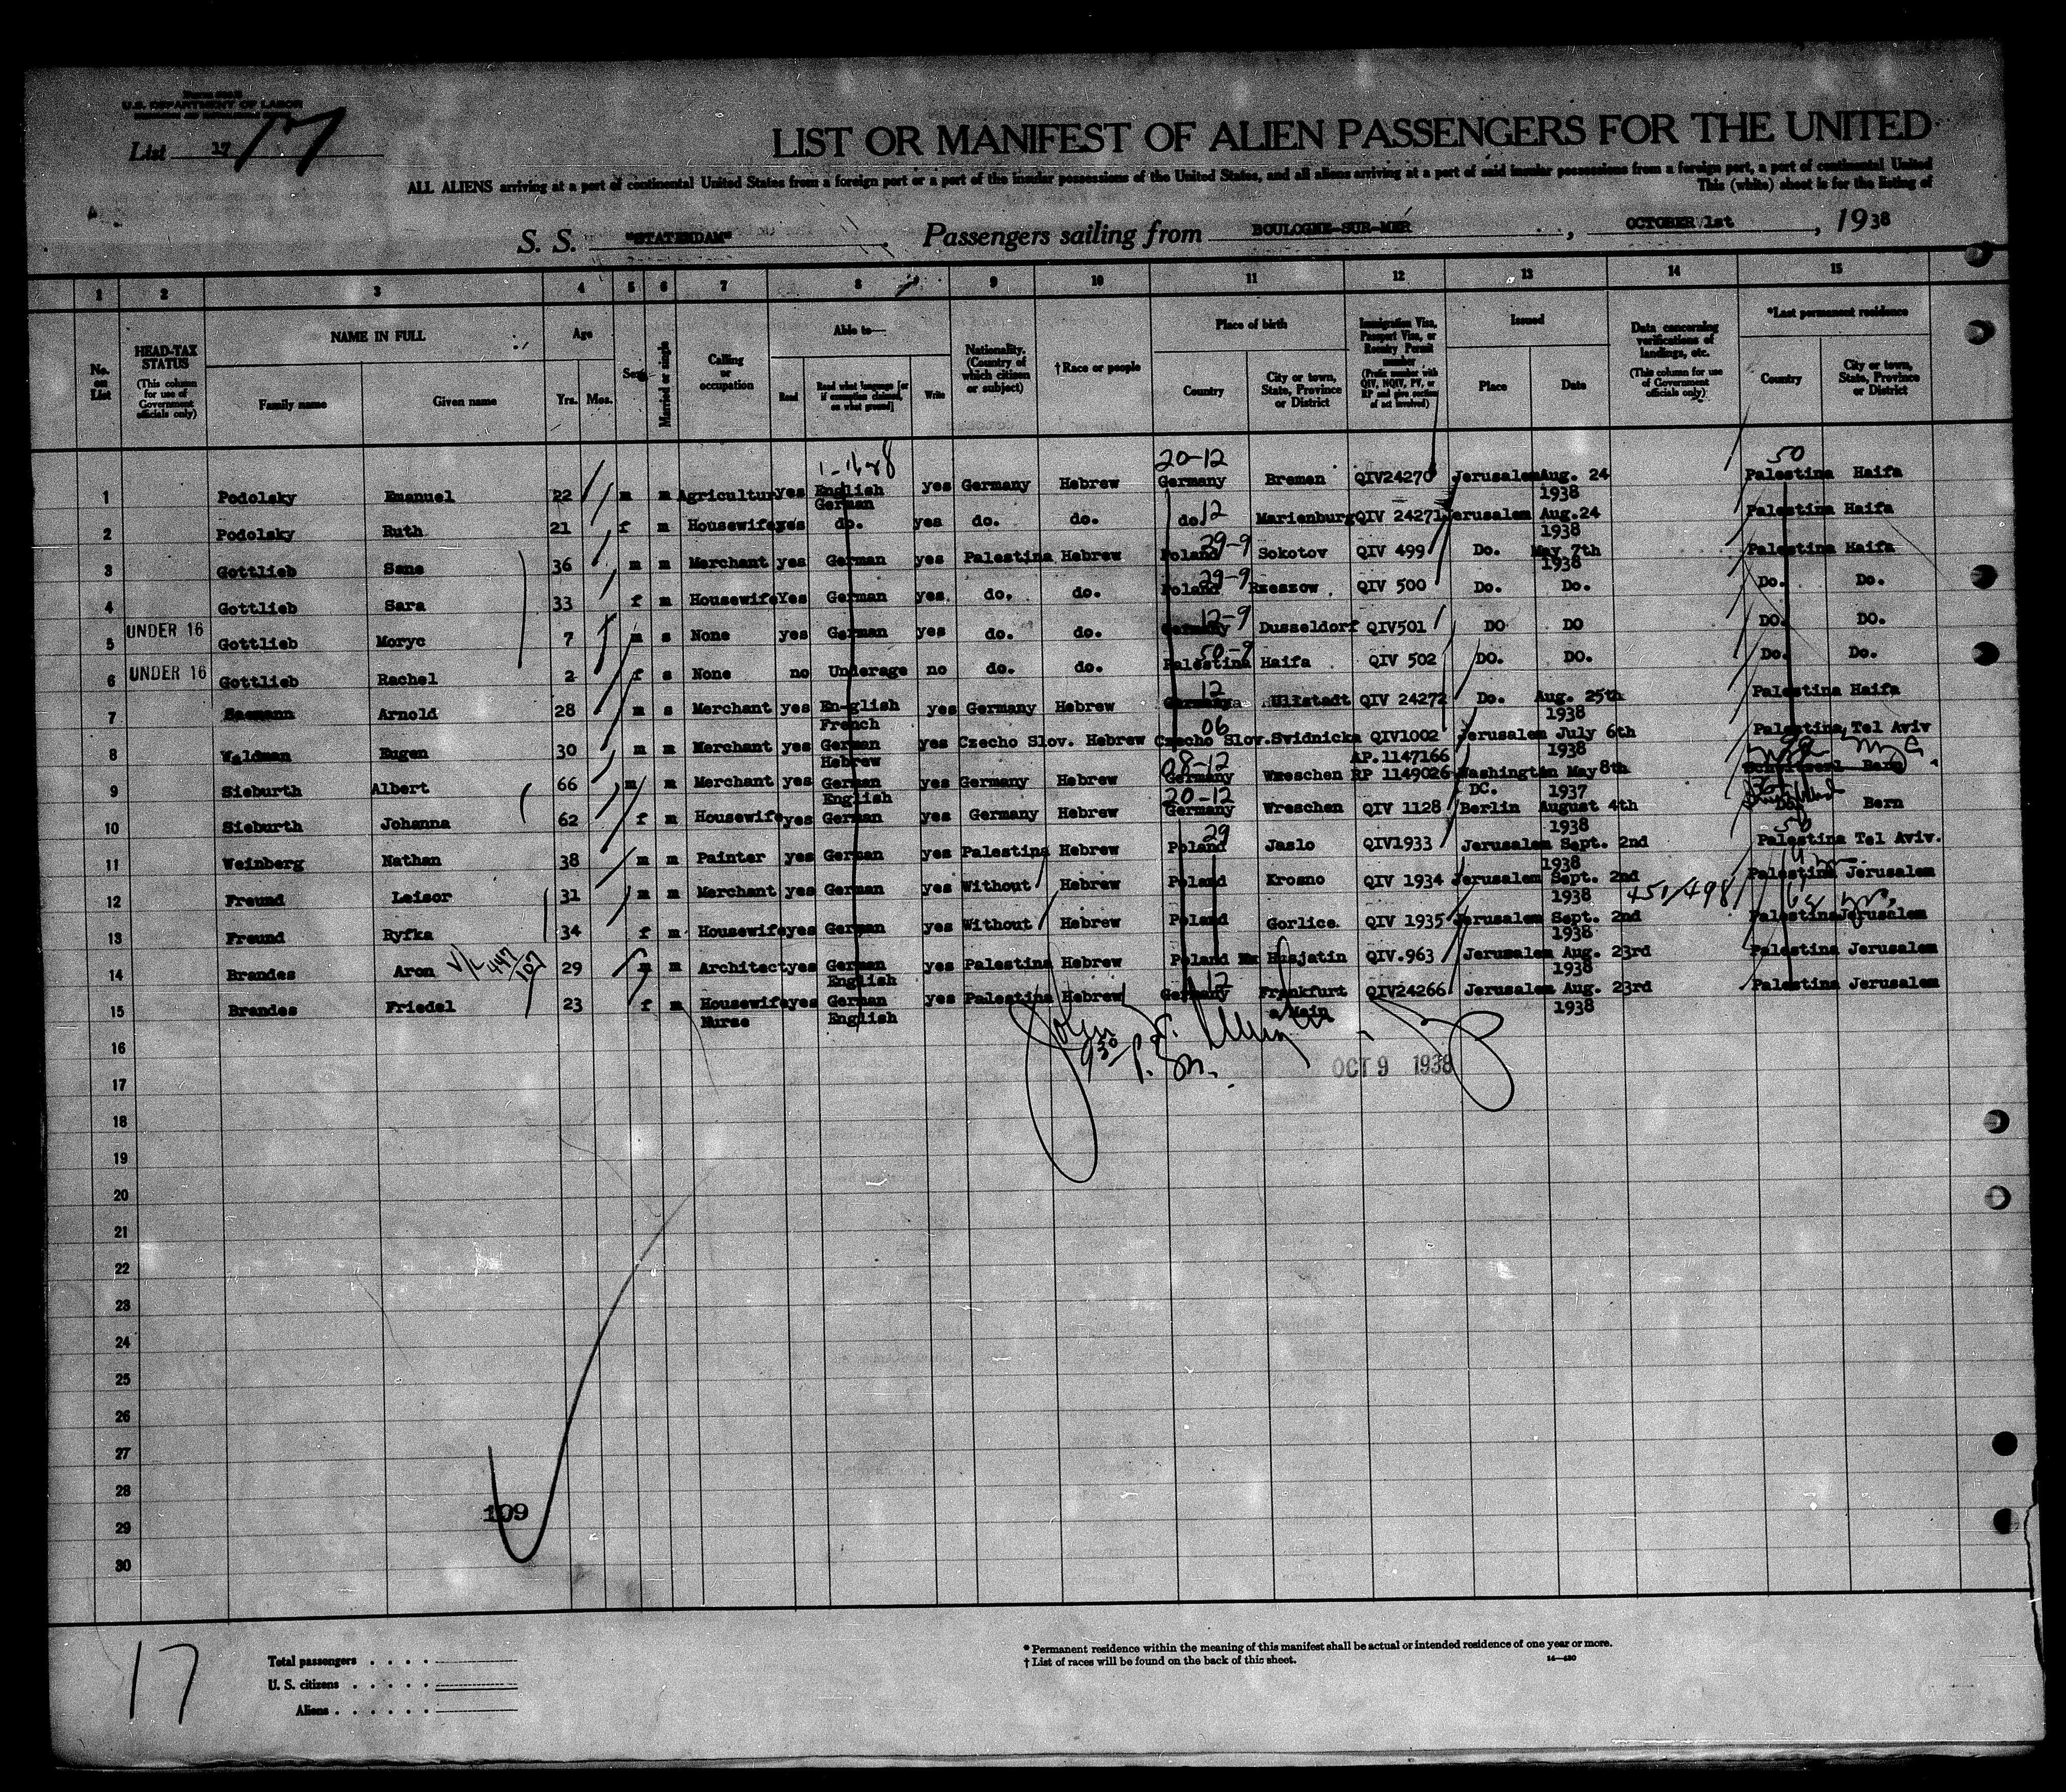 U.S. DEPARTMENT OF LABOR
List 17 17
LIST OR MANIFEST OF ALIEN PASSENGERS FOR THE UNITED
ALL ALIENS arriving at a port of continental United States from a foreign port or a port of the insular possessions of the United States, and all aliens arriving at a port of said insular possessions from a foreign port, a port of continental United
This (white) sheet is for the listing of
S. S. "STATENDAM" Passengers sailing from BOULOGNE-SUR-MER, OCTOBER 1st, 1938
1 2 3 4 5 6 7 8 9 10 11 12 13 14 15
No. on List
HEAD-TAX STATUS (This column for use of Government officials only)
NAME IN FULL
Family name Given name
Age
Yrs. Mos.
Sex
Married or single
Calling or occupation
Able to—
Read Read what language [or if exemption claimed, on what ground] Write
Nationality. (Country of which citizen or subject)
†Race or people
Place of birth
Country City or town, State, Province or District
Immigration Visa, Passport Visa, or Reentry Permit number (Prefix number with QIV, NQIV, PV, or RP and give section of act involved)
Issued
Place Date
Data concerning verifications of landings, etc. (This column for use of Government officials only)
*Last permanent residence
Country City or town, State, Province or District
20-12 50
1 Podolsky Emanuel 22 m m Agricultur yes English yes Germany Hebrew Germany Bremen QIV24270 Jerusalem Aug. 24 Palestina Haifa
German 1938
2 Podolsky Ruth 21 f m Housewife yes do. yes do. do. do. 12 Marienburg QIV 24271 Jerusalem Aug.24 Palestina Haifa
1938
29-9
3 Gottlieb Sane 36 m m Merchant yes German yes Palestina Hebrew Poland Sokotov QIV 499 Do. May 7th Palestina Haifa
1938
29-9
4 Gottlieb Sara 33 f m Housewife Yes German yes. do. do. Poland Rzeszow QIV 500 Do. Do. Do. Do.
12-9
5 UNDER 16 Gottlieb Moryc 7 m s None yes German yes do. do. Germany Dusseldorf QIV501 DO DO DO. DO.
50-9
6 UNDER 16 Gottlieb Rachel 2 f s None no Underage no do. do. Palestina Haifa QIV 502 DO. DO. Do. Do.
12
7 Arnold 28 m s Merchant yes En-glish yes Germany Hebrew QIV 24272 Do. Aug. 25th Palestina Haifa
French 1938
06
8 Waldman Eugen 30 m m Merchant yes German yes Czecho Slov. Hebrew Czecho Slov. Svidnicka QIV1002 Jerusalem July 6th Palestina, Tel Aviv
Hebrew AP.1147166 1938
08-12
9 Sieburth Albert 66 m m Merchant yes German yes Germany Hebrew Germany Wreschen RP 1149026 Washington May 8th Bern
English DC. 1937
20-12
10 Sieburth Johanna 62 f m Housewife yes German yes Germany Hebrew Germany Wreschen QIV 1128 Berlin August 4th Bern
1938
29 50
11 Weinberg Nathan 38 m m Painter yes German yes Palestina Hebrew Poland Jaslo QIV1933 Jerusalem Sept. 2nd Palestina Tel Aviv.
1938
12 Freund Leisor 31 m m Merchant yes German yes Without Hebrew Poland Krosno QIV 1934 Jerusalem Sept. 2nd Palestina Jerusalem
1938 451/498
13 Freund Ryfka 34 f m Housewife yes German yes Without Hebrew Poland Gorlice. QIV 1935 Jerusalem Sept. 2nd Palestina Jerusalem
1938
14 Brandes Aron V/L 447/107 29 m m Architect yes German yes Palestina Hebrew Poland Husjatin QIV.963 Jerusalem Aug. 23rd Palestina Jerusalem
English 1938
12
15 Brandes Friedel 23 f m Housewife yes German yes Palestina Hebrew Germany Frankfurt QIV24266 Jerusalem Aug. 23rd Palestina Jerusalem
Nurse English a/Main 1938
16
17 OCT 9 1938
18
19
20
21
22
23
24
25
26
27
28
109
29
30
17
Total passengers
U. S. citizens
Aliens
* Permanent residence within the meaning of this manifest shall be actual or intended residence of one year or more.
† List of races will be found on the back of this sheet.
14—430